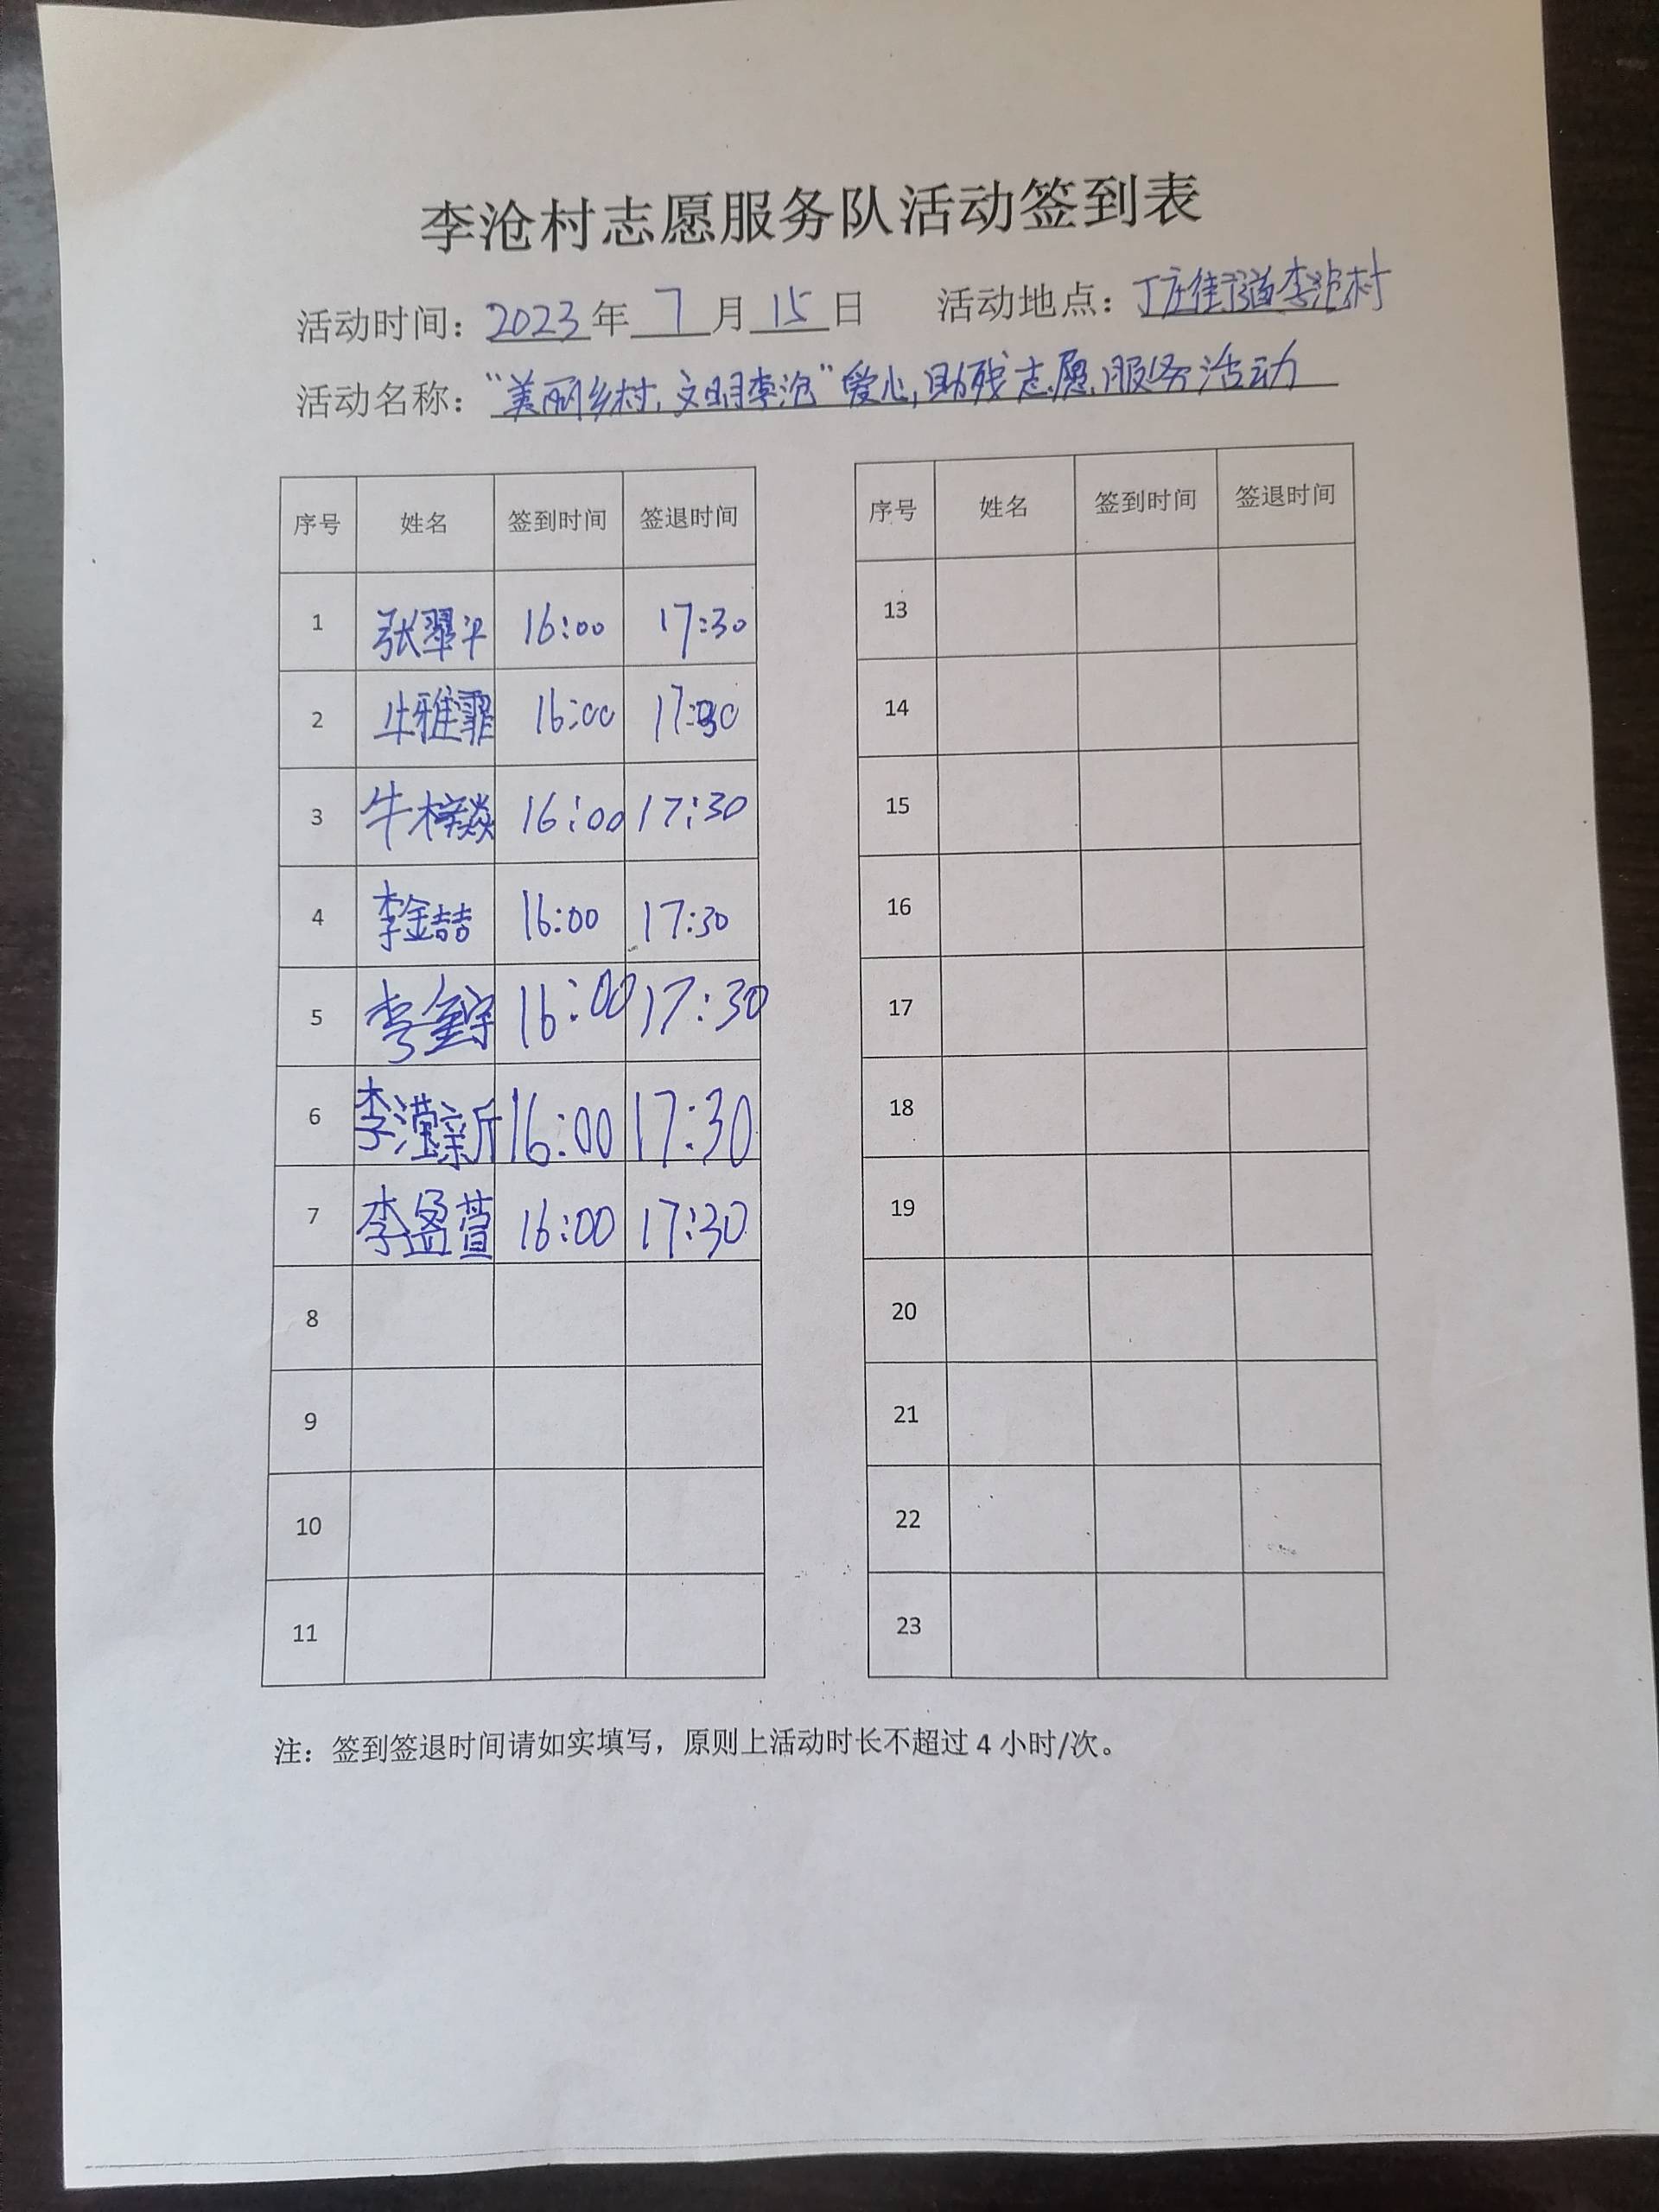 李沧村志愿服务队活动签到表
活动时间：2023年7月15日 活动地点：丁庄街道李沧村
活动名称："美丽乡村，文明李沧"爱心助残志愿服务活动
序号 姓名 签到时间 签退时间 序号 姓名 签到时间 签退时间
1 张翠平 16:00 17:30 13
2 牛雅霏 16:00 17:30 14
3 牛梓焱 16:00 17:30 15
4 李金喆 16:00 17:30 16
5 李金宇 16:00 17:30 17
6 李滢新 16:00 17:30 18
7 李盈萱 16:00 17:30 19
8 20
9 21
10 22
11 23
注：签到签退时间请如实填写，原则上活动时长不超过 4 小时/次。